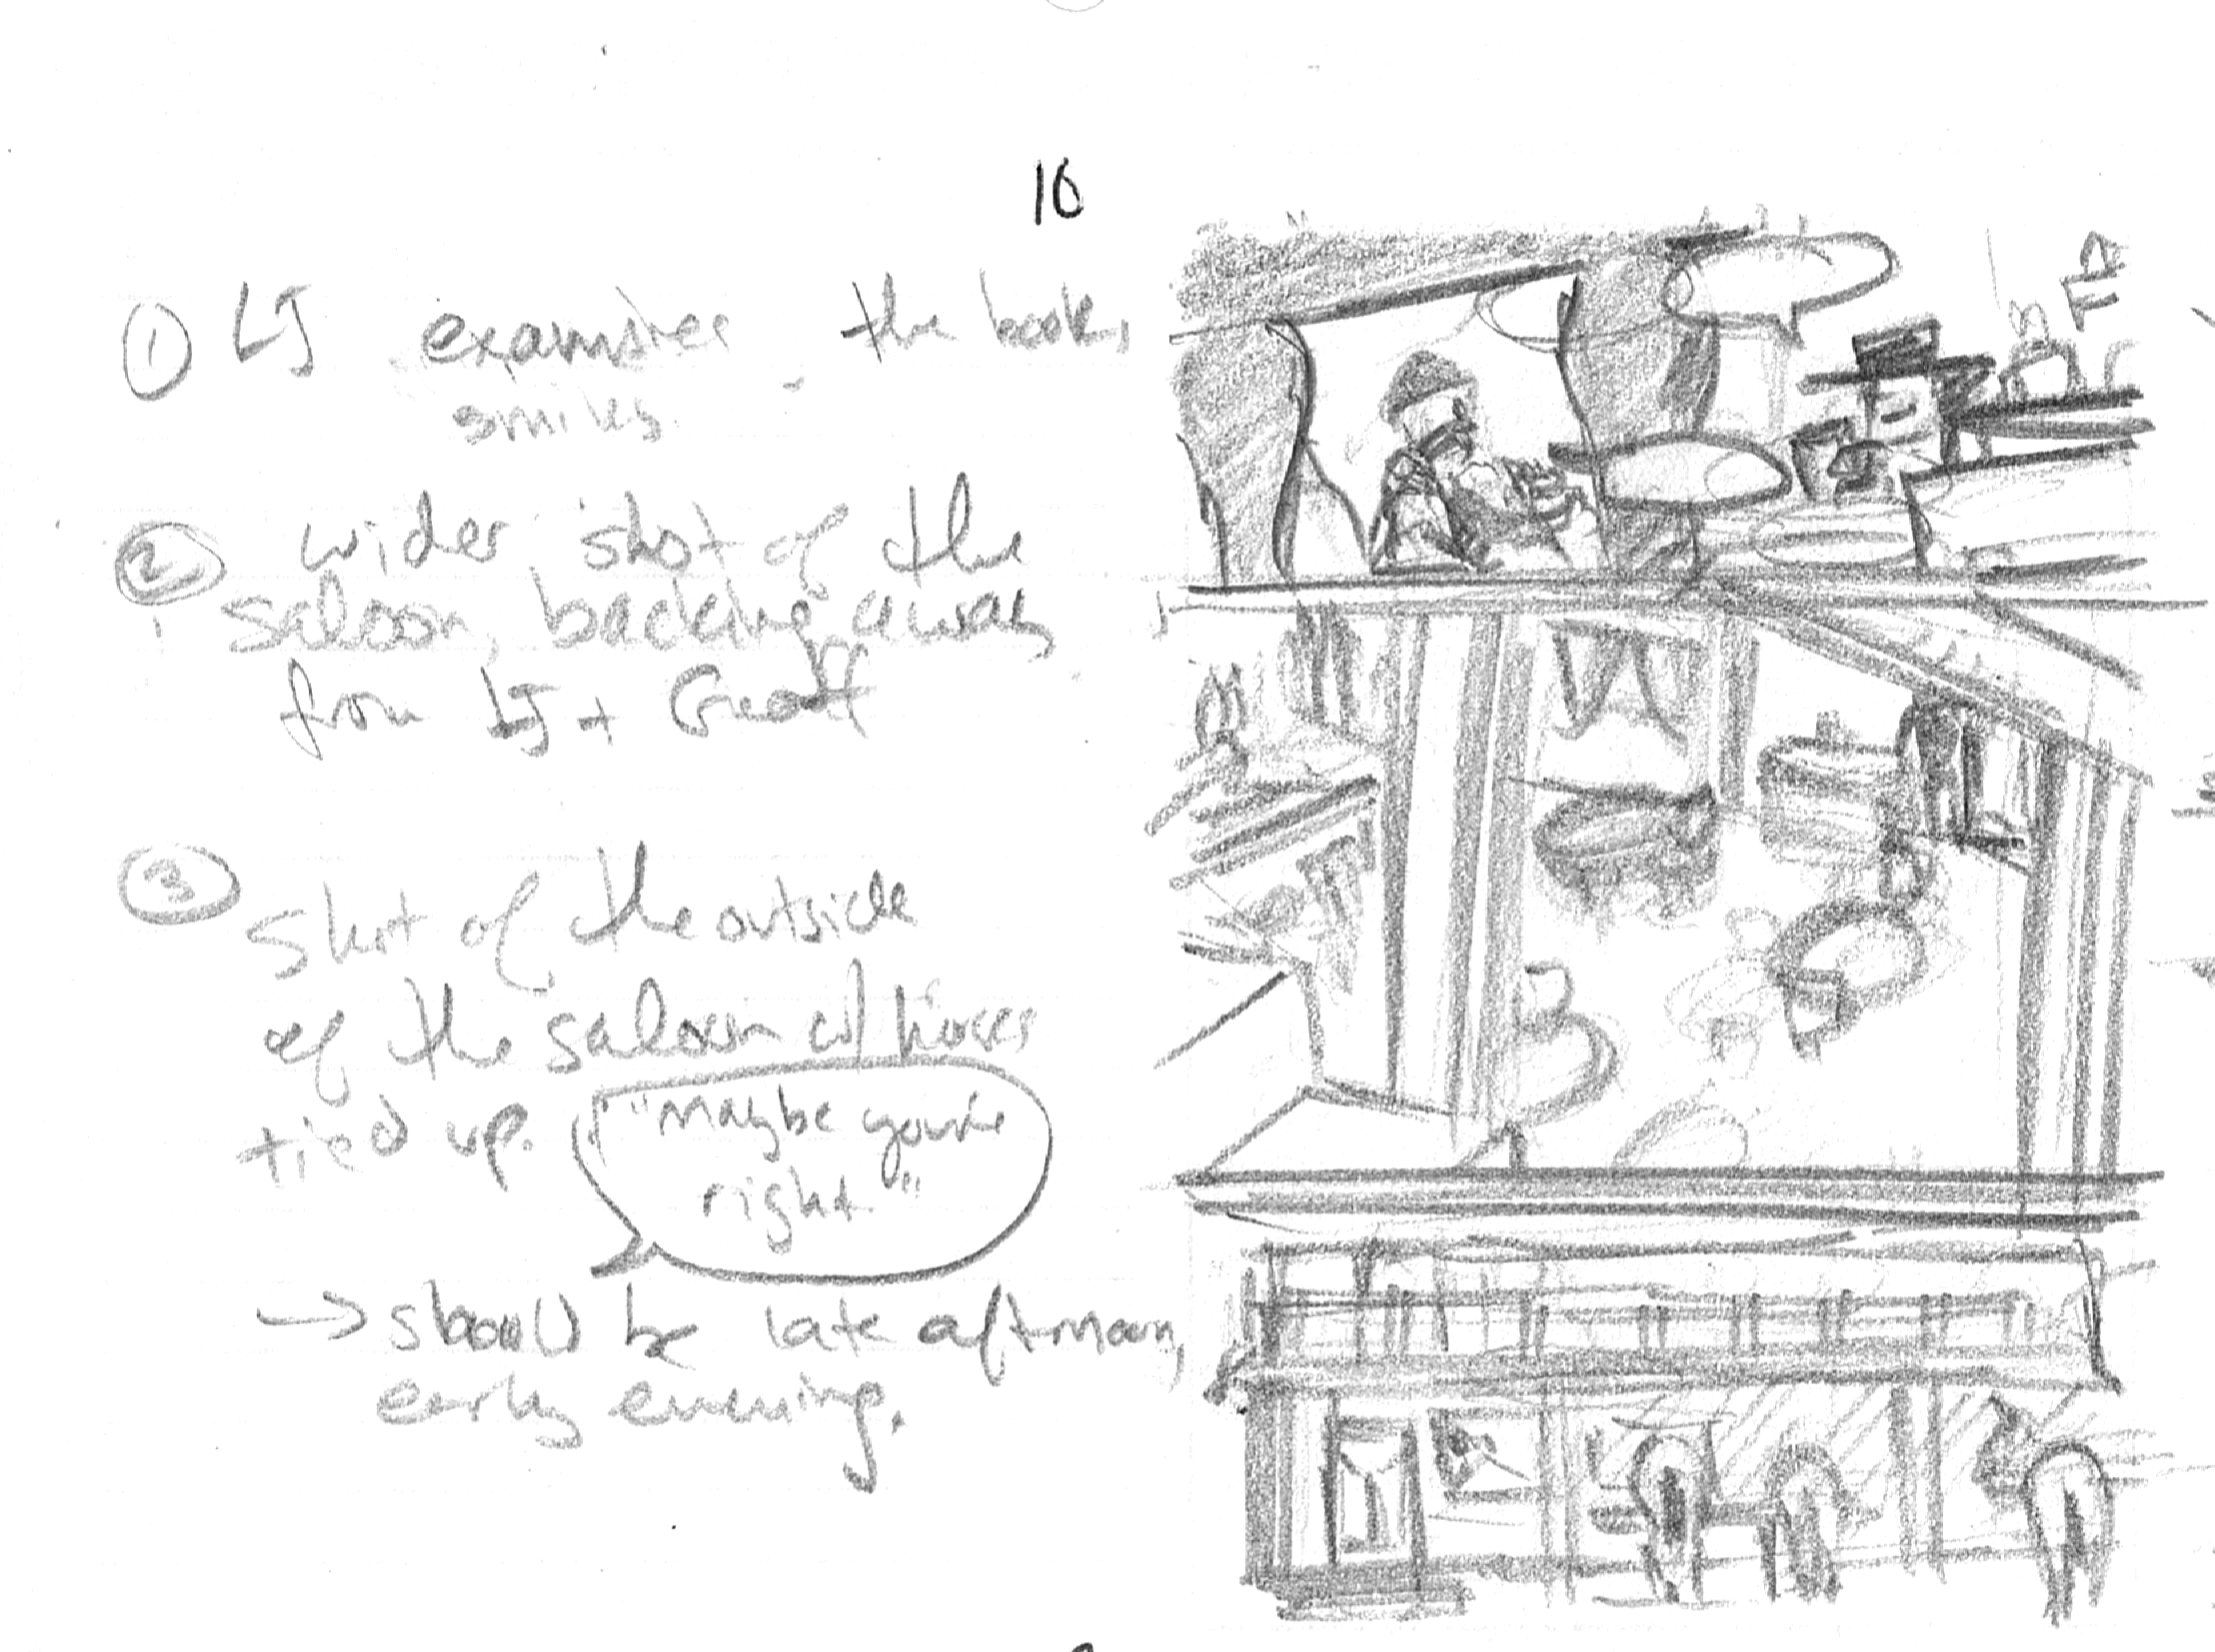 10
① LJ examines the books,
smiles.
② wider shot of the
saloon, backing away
from LJ + Geoff
③ Shot of the outside
of the saloon w/ horses
tied up.
"Maybe you're
right."
→ should be late afternoon,
early evening.